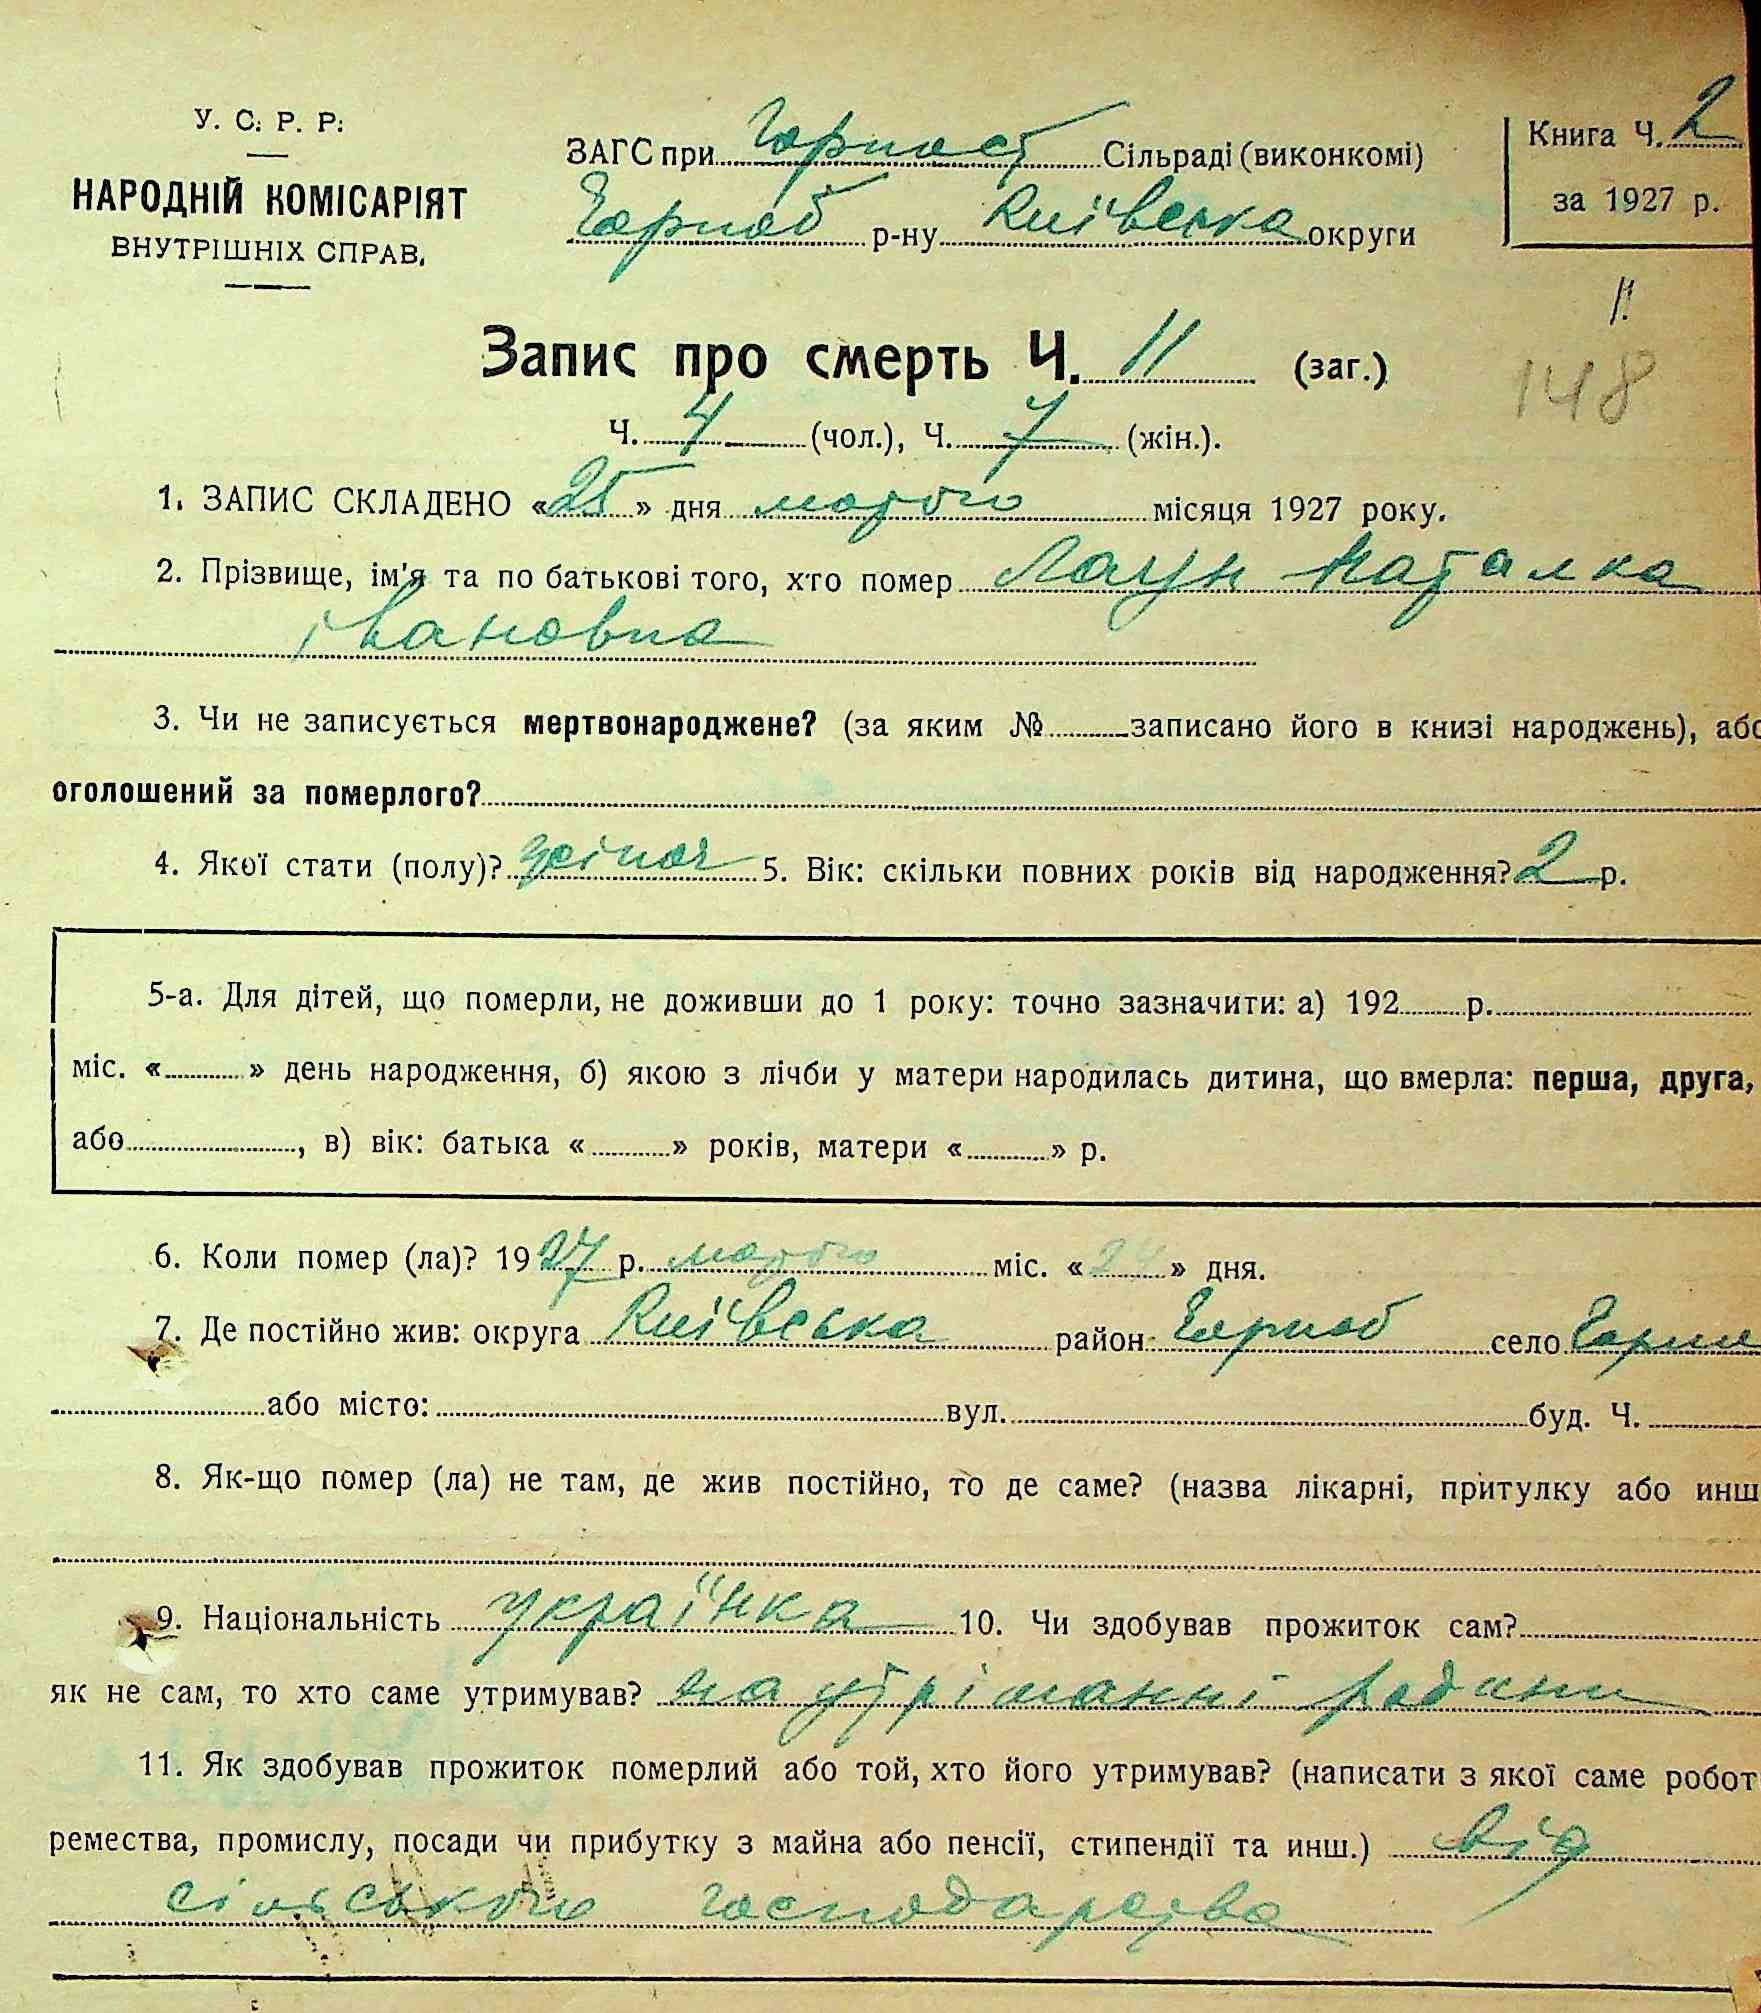 У. С. Р. Р.
НАРОДНІЙ КОМІСАРІЯТ
ВНУТРІШНІХ СПРАВ.
ЗАГС при Горност Сільраді (виконкомі)
р-ну Київська округи
Книга Ч. 2
за 1927 р.
11
Запис про смерть Ч. 11 (заг.)
148
Ч. 4 (чол.), Ч. 7 (жін.).
1. ЗАПИС СКЛАДЕНО «25» дня лютого місяця 1927 року.
2. Прізвище, ім'я та по батькові того, хто помер Лаун Наталка
івановна
3. Чи не записується мертвонароджене? (за яким № записано його в книзі народжень), або
оголошений за померлого?
4. Якої стати (полу)? жіноч 5. Вік: скільки повних років від народження? 2 р.
5-а. Для дітей, що померли, не доживши до 1 року: точно зазначити: а) 192 р.
міс. « » день народження, б) якою з лічби у матери народилась дитина, що вмерла: перша, друга,
або , в) вік: батька « » років, матери « » р.
6. Коли помер (ла)? 1927 р. лютого міс. «24» дня.
7. Де постійно жив: округа Київська район село
або місто: вул. буд. Ч.
8. Як-що помер (ла) не там, де жив постійно, то де саме? (назва лікарні, притулку або инш
9. Національність українка 10. Чи здобував прожиток сам?
як не сам, то хто саме утримував? на утріманні родини
11. Як здобував прожиток померлий або той, хто його утримував? (написати з якої саме робот
ремества, промислу, посади чи прибутку з майна або пенсії, стипендії та инш.) від
сільського господарства